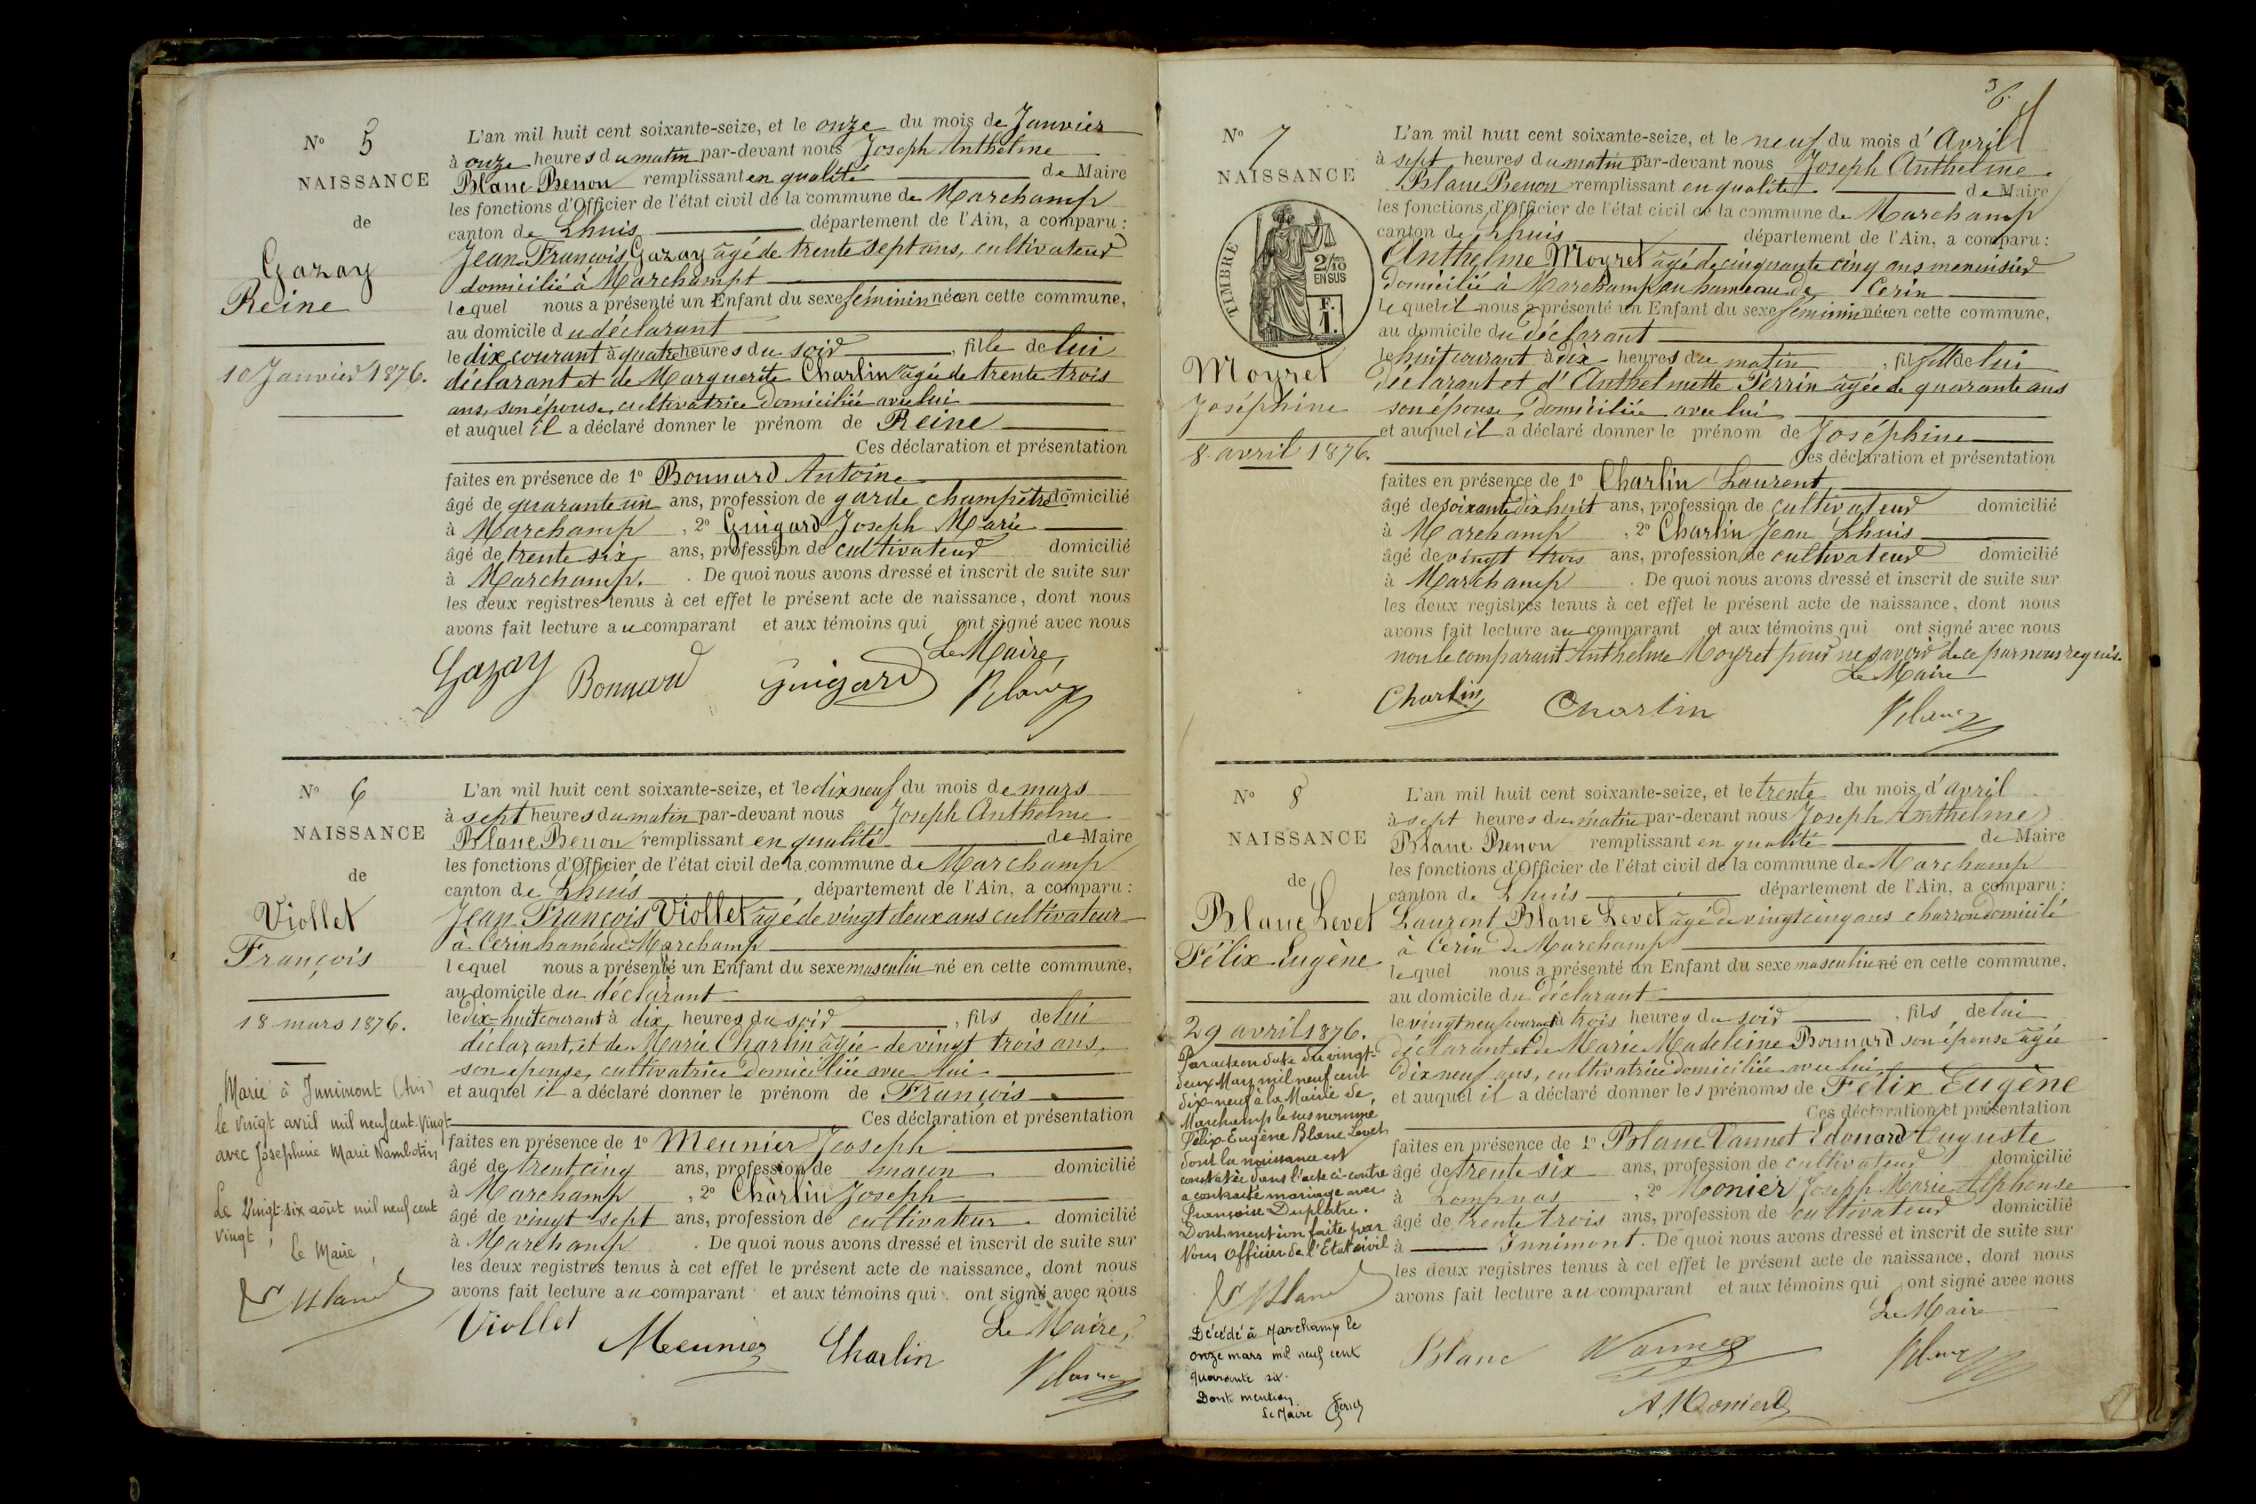 No 5
NAISSANCE
de
Gazay
Reine
10 Janvier 1876.
L'an mil huit cent soixante-seize, et le onze du mois de Janvier
à onze heures du matin par-devant nous Joseph Anthelme
Blanc Benon remplissant en qualité de Maire
les fonctions d'Officier de l'état civil de la commune de Marchamp
canton de Lhuis département de l'Ain, a comparu :
Jean François Gazay âgé de trente sept ans, cultivateur
domicilié à Marchampt
lequel nous a présenté un Enfant du sexe féminin née en cette commune,
au domicile du déclarant
le dix courant à quatre heures du soir, fille de lui
déclarant et de Marguerite Charlin âgée de trente trois
ans, son épouse, cultivatrice domiciliée avec lui
et auquel il a déclaré donner le prénom de Reine
Ces déclaration et présentation
faites en présence de 1º Bonnard Antoine
âgé de quarante un ans, profession de garde champêtre domicilié
à Marchamp, 2º Guigard Joseph Marie
âgé de trente six ans, profession de cultivateur domicilié
à Marchamp. De quoi nous avons dressé et inscrit de suite sur
les deux registres tenus à cet effet le présent acte de naissance, dont nous
avons fait lecture au comparant et aux témoins qui ont signé avec nous
Le Maire
Gazay Bonnard Guigard Blanc
No 6
NAISSANCE
de
Viollet
François
18 mars 1876.
Marié à Innimont (Ain)
le vingt avril mil neuf cent vingt
avec Joséphine Marie Nambotin
Le Vingt-six août mil neuf cent
vingt,
Le Maire,
Blanc
L'an mil huit cent soixante-seize, et le dix neuf du mois de mars
à sept heures du matin par-devant nous Joseph Anthelme
Blanc Benon remplissant en qualité de Maire
les fonctions d'Officier de l'état civil de la commune de Marchamp
canton de Lhuis département de l'Ain, a comparu :
Jean François Viollet âgé de vingt deux ans cultivateur
à Cerin hameau Marchamp
lequel nous a présenté un Enfant du sexe masculin né en cette commune,
au domicile du déclarant
le dix-huit courant à dix heures du soir, fils de lui
déclarant, et de Marie Charlin âgée de vingt trois ans,
son épouse, cultivatrice domiciliée avec lui
et auquel il a déclaré donner le prénom de François
Ces déclaration et présentation
faites en présence de 1º Meunier Jooseph
âgé de trent cinq ans, profession de macon domicilié
à Marchamp, 2º Charlin Joseph
âgé de vingt sept ans, profession de cultivateur domicilié
à Marchamp. De quoi nous avons dressé et inscrit de suite sur
les deux registres tenus à cet effet le présent acte de naissance, dont nous
avons fait lecture au comparant et aux témoins qui ont signé avec nous
Le Maire,
Viollet Meunier Charlin Blanc
36
No 7
NAISSANCE
TIMBRE
2/10
EN SUS
F.
1.
Moyret
Joséphine
8 avril 1876.
L'an mil huit cent soixante-seize, et le neuf du mois d'Avril
à sept heures du matin par-devant nous Joseph Anthelme
Blanc Benon remplissant en qualité de Maire
les fonctions d'Officier de l'état civil de la commune de Marchamp
canton de Lhuis département de l'Ain, a comparu :
Anthelme Moyret âgé de cinquante cinq ans menuisier
domicilié à Marchamp au hameau de Cerin
lequel il nous a présenté un Enfant du sexe féminin née en cette commune,
au domicile du déclarant
le huit courant à dix heures du matin, fille de lui
déclarant et d'Anthelmette Perrin âgée de quarante ans
son épouse, domiciliée avec lui
et auquel il a déclaré donner le prénom de Joséphine
Ces déclaration et présentation
faites en présence de 1º Charlin Laurent
âgé de soixante dix huit ans, profession de cultivateur domicilié
à Marchamp, 2º Charlin Jean Lhuis
âgé de vingt trois ans, profession de cultivateur domicilié
à Marchamp. De quoi nous avons dressé et inscrit de suite sur
les deux registres tenus à cet effet le présent acte de naissance, dont nous
avons fait lecture au comparant et aux témoins qui ont signé avec nous
non le comparant Anthelme Moyret pour ne savoir de ce par nous requis.
Le Maire
Charlin Charlin Blanc
No 8
NAISSANCE
de
Blanc Levet
Félix Eugène
29 avril 1876.
Par acte en date du vingt-
deux Mars mil neuf cent
dix-neuf à la Mairie de
Marchamp le susnommé
Félix-Eugène Blanc Levet
dont la naissance est
constatée dans l'acte ci-contre
a contracté mariage avec
Françoise Duplatre.
Dont mention faite par
Nous Officier de l'Etat civil
Blanc
Décédé à Marchamp le
onze mars mil neuf cent
quarante six.
Dont mention
Le Maire
L'an mil huit cent soixante-seize, et le trente du mois d'avril
à sept heures du matin par-devant nous Joseph Anthelme
Blanc Benon remplissant en qualité de Maire
les fonctions d'Officier de l'état civil de la commune de Marchamp
canton de Lhuis département de l'Ain, a comparu :
Laurent Blanc Levet âgé de vingt cinq ans charron domicilié
à Cerin de Marchamp
lequel nous a présenté un Enfant du sexe masculin né en cette commune,
au domicile du déclarant
le vingt neuf courant à trois heures du soir, fils de lui
déclarant et de Marie Madeleine Bonnard son épouse âgée
dix neuf ans, cultivatrice domiciliée avec lui
et auquel il a déclaré donner les prénoms de Félix Eugène
Ces déclaration et présentation
faites en présence de 1º Blanc Vannet Edouard Auguste
âgé de trente six ans, profession de cultivateur domicilié
à Lompnas, 2º Monier Joseph Marie Alphonse
âgé de trente trois ans, profession de cultivateur domicilié
à Innimont. De quoi nous avons dressé et inscrit de suite sur
les deux registres tenus à cet effet le présent acte de naissance, dont nous
avons fait lecture au comparant et aux témoins qui ont signé avec nous
Le Maire
Blanc Vannet Blanc
A. Monier